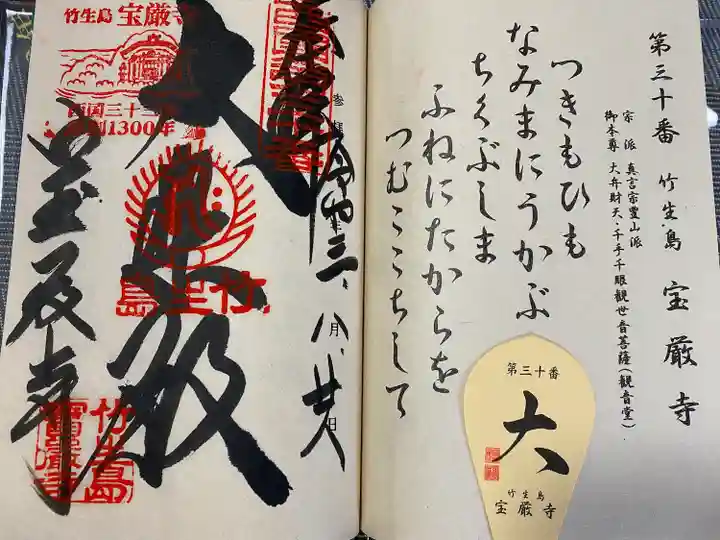 第三十番 竹生島 宝厳寺
宗派 真言宗豊山派
御本尊 大弁財天・千手千眼観世音菩薩(観音堂)
つきもひも
なみまにうかぶ
ちくぶしま
ふねにたからを
つむここちして
第三十番
大
竹生島
宝厳寺
竹生島 宝厳寺
西国三十三所
1300年
令和三年八月廿八日
大悲殿
竹生島
宝厳寺
竹生島
寶嚴寺